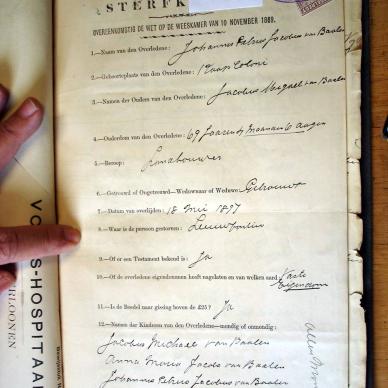 STERFK
OVEREENKOMSTIG DE WET OP DE WEESKAMER VAN 10 NOVEMBER 1889.
1.—Naam van den Overledene: Johannes Petrus Jacobus van Baalen
2.—Geboorteplaats van den Overledene: Kaap Coloni
3.—Namen der Ouders van den Overledene: Jacobus Migael van Baalen
4.—Ouderdom van den Overledene: 69 Jaaren 4 Maanan 6 dagen
5.—Beroep: Landbouwer
6.—Getrouwd of Ongetrouwd—Weduwnaar of Weduwe: Getrouwt
7.—Datum van overlijden: 18 Mei 1897
8.—Waar is de persoon gestorven: Leeuwfontein
9.—Of er een Testament bekend is: Ja
10.—Of de overledene eigendommen heeft nagelaten en van welken aard Vaste
Eigendom
11.—Is de Boedel naar gissing boven de £25? Ja
12.—Namen der Kinderen van den Overledene—mondig of onmondig:
Jacobus Michael van Baalen
Anna Maria Jacoba van Baalen
Johannes Petrus Jacobus van Baalen
VO
S-HOSPITAA
RLOONEN